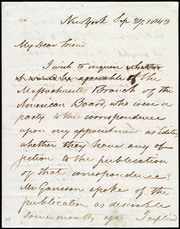 New York Sep 27. 1843
My Dear Friend
I wish to inquire whether
it would be agreeable to the
Massachusetts Branch of the
American Board, who were a
party to the correspondence
upon my appointment as Editor
whether they have any ob
jection to the publication
of that correspondence?
Mr Garrison spoke of the
publication as desirable
some months ago. I replied